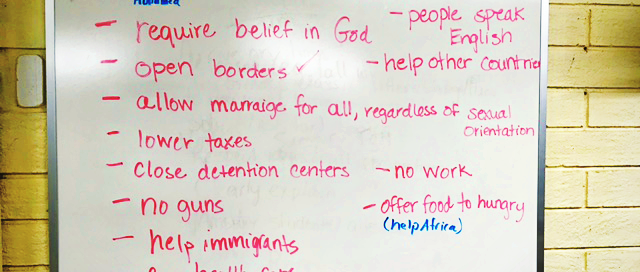 - require belief in God
- people speak
English
- open borders ✓
- help other countrie
- allow marraige for all, regardless of sexual
orientation
- lower taxes
- Close detention centers
- no work
- no guns
- offer food to hungry
(help Africa)
- help immigrants